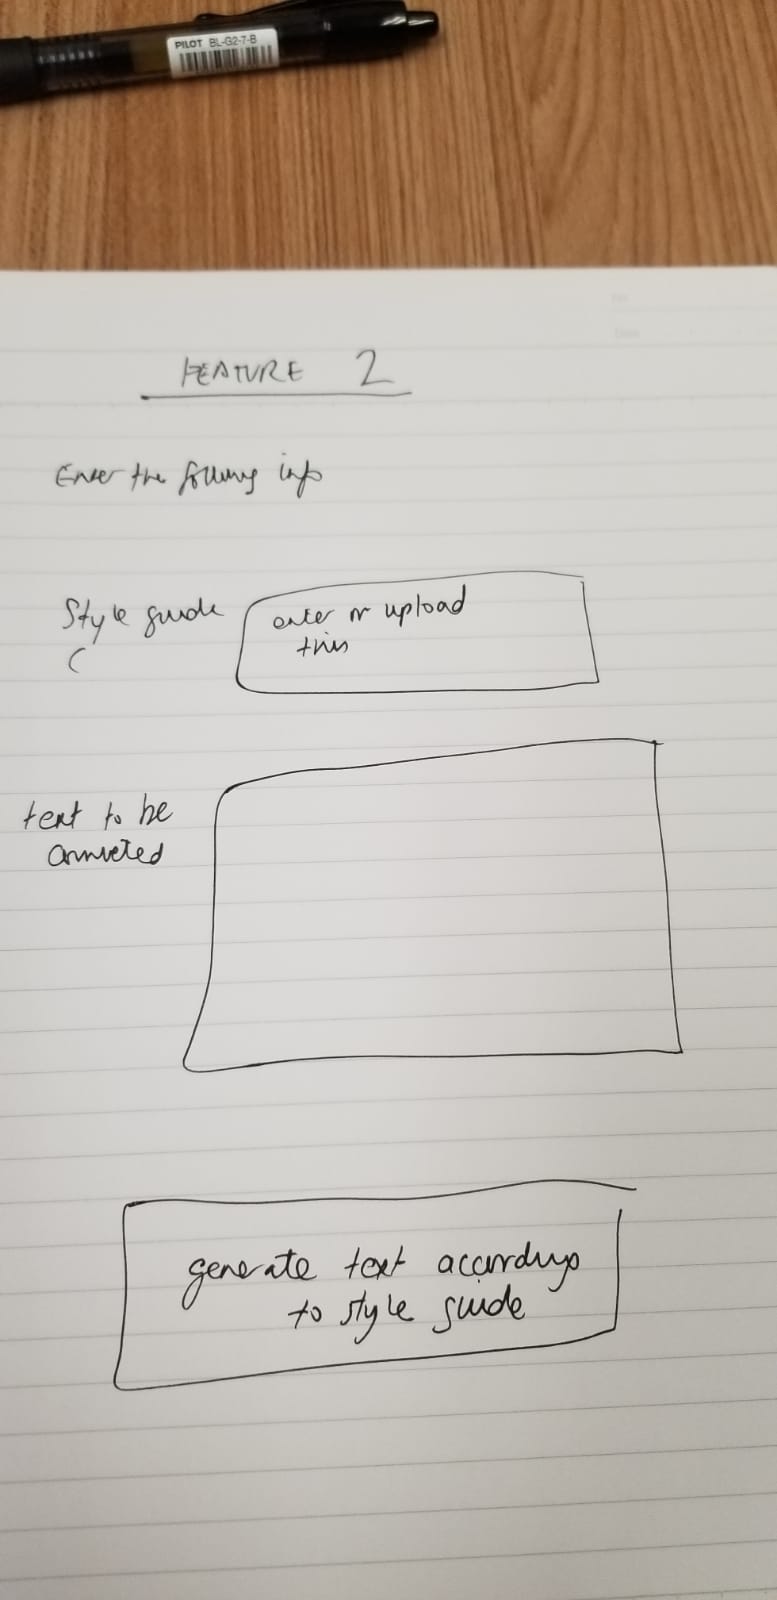 PILOT BL-G2-7-B
FEATURE 2
Enter the following info
Style guide
(
enter or upload
this
text to be
converted
generate text according
to style guide